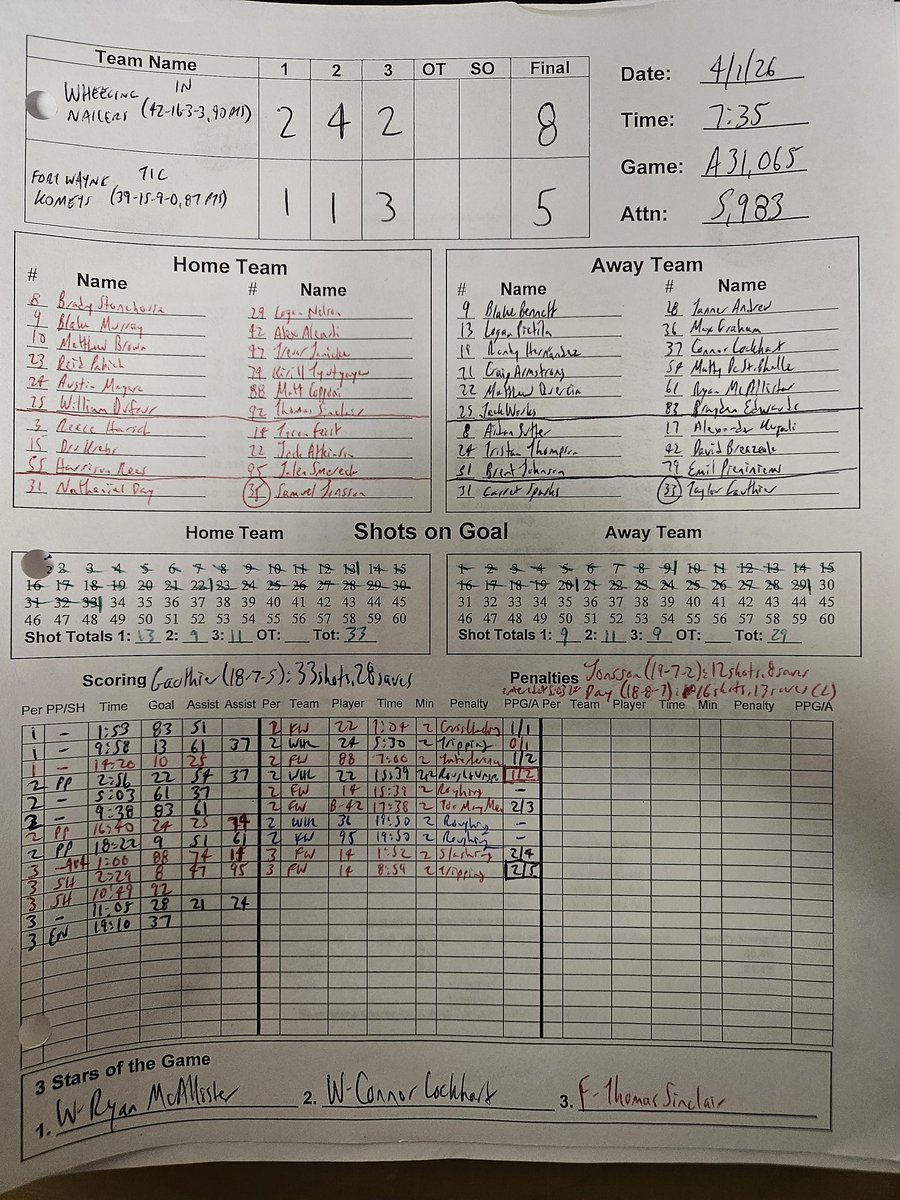 Team Name 1 2 3 OT SO Final
WHEELING IN
NAILERS (42-16-3-3, 90 PTS) 2 4 2 8
FORT WAYNE TIC
KOMETS (39-15-9-0, 87 PTS) 1 1 3 5
Date: 4/1/26
Time: 7:35
Game: A31,065
Attn: 5,983
Home Team
# Name # Name
8 Brady Stonehouse 29 Logan Nelson
9 Blake Murray 42 Alex Aleardi
10 Matthew Brown 47
23 74 Kirill Tyutyayev
24 Austin Magera 88 Matt Copponi
25 William Dufour 92 Thomas Sinclair
3 Reece Harsch 14 Tyson Feist
15 Dru Krebs 22 Jack Atkinson
55 Harrison Rees 95 Jalen Smereck
31 Nathaniel Day 35 Samuel Jonsson
Away Team
# Name # Name
9 Blake Bennett 28 Tanner Andrew
13 Logan Pietila 36 Max Graham
19 Randy Hernández 37 Connor Lockhart
21 Craig Armstrong 54 Matty De St. Phalle
22 Matthew Quercia 61 Ryan McAllister
25 Jack Works 83 Brayden Edwards
8 Aidan Sutter 17
24 Tristan Thompson 42 David Breazeale
51 Brent Johnson 79 Emil Pieniniemi
31 33 Taylor Gauthier
Home Team Shots on Goal Away Team
1 2 3 4 5 6 7 8 9 10 11 12 13 14 15
16 17 18 19 20 21 22 23 24 25 26 27 28 29 30
31 32 33 34 35 36 37 38 39 40 41 42 43 44 45
46 47 48 49 50 51 52 53 54 55 56 57 58 59 60
Shot Totals 1: 13 2: 9 3: 11 OT: Tot: 33
1 2 3 4 5 6 7 8 9 10 11 12 13 14 15
16 17 18 19 20 21 22 23 24 25 26 27 28 29 30
31 32 33 34 35 36 37 38 39 40 41 42 43 44 45
46 47 48 49 50 51 52 53 54 55 56 57 58 59 60
Shot Totals 1: 9 2: 11 3: 9 OT: Tot: 29
Scoring Gauthier (18-7-5): 33 shots, 28 saves
Penalties Jonsson (19-7-2): 12 shots, 8 saves
Day (18-8-7): 16 shots, 13 saves (L)
Per PP/SH Time Goal Assist Assist
1 - 1:53 83 51
1 - 9:58 13 61 37
1 - 14:20 10 25
2 PP 2:56 22 54 37
2 - 5:03 61 37
2 - 9:38 83 61
2 PP 16:40 24 25 74
2 PP 18:22 9 51 61
3 4x4 1:00 88 74 14
3 SH 2:29 8 47 95
3 SH 10:49 92
3 - 11:05 28 21 24
3 EN 19:10 37
Per Team Player Time Min Penalty PPG/A
2 FW 22 1:04 2 1/1
2 WHL 24 5:30 2 Tripping 0/1
2 FW 88 7:00 2 Interference 1/2
2 WHL 22 15:39 2,2 1/2
2 FW 14 15:39 2 Roughing -
2 FW B-42 17:38 2 Too Many Men 2/3
2 WHL 36 19:50 2 Roughing -
2 FW 95 19:50 2 Roughing -
3 FW 14 1:52 2 Slashing 2/4
3 FW 14 8:59 2 Tripping 2/5
Per Team Player Time Min Penalty PPG/A
3 Stars of the Game
1. W-Ryan McAllister 2. W-Connor Lockhart 3. F-Thomas Sinclair